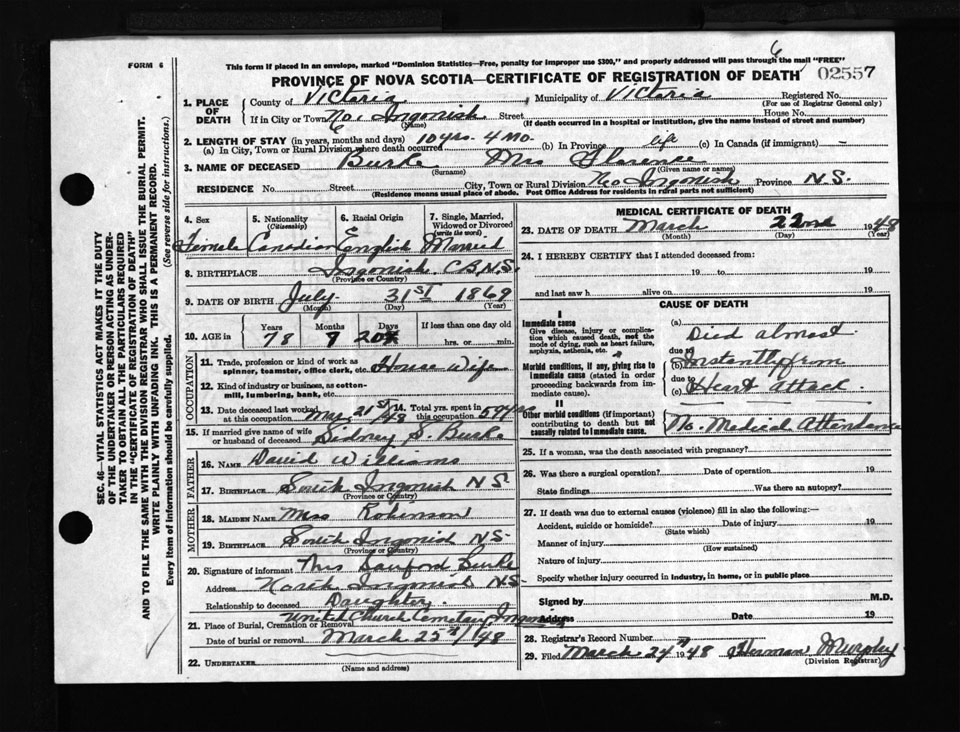 6
FORM 6
This form if placed in an envelope, marked "Dominion Statistics—Free, penalty for improper use $300," and properly addressed will pass through the mail "FREE"
PROVINCE OF NOVA SCOTIA—CERTIFICATE OF REGISTRATION OF DEATH
02557
SEC. 46—VITAL STATISTICS ACT MAKES IT THE DUTY
OF THE UNDERTAKER OR PERSON ACTING AS UNDER-
TAKER TO OBTAIN ALL THE PARTICULARS REQUIRED
IN THE "CERTIFICATE OF REGISTRATION OF DEATH"
AND TO FILE THE SAME WITH THE DIVISION REGISTRAR WHO SHALL ISSUE THE BURIAL PERMIT.
WRITE PLAINLY WITH UNFADING INK. THIS IS A PERMANENT RECORD.
Every item of information should be carefully supplied. (See reverse side for instructions.)
1. PLACE OF DEATH County of Victoria Municipality of Victoria Registered No.
(For use of Registrar General only)
If in City or Town No. Ingonish Street House No.
(Name) (If death occurred in a hospital or institution, give the name instead of street and number)
2. LENGTH OF STAY (in years, months and days)
(a) In City, Town or Rural Division where death occurred 10 yrs. 4 Mo. (b) In Province life (c) In Canada (if immigrant) —
3. NAME OF DECEASED Burke Mrs Florence
(Surname) (Given name or names)
RESIDENCE No. Street City, Town or Rural Division No Ingonish Province N.S.
(Residence means usual place of abode. Post Office Address for residents in rural parts not sufficient)
4. Sex 5. Nationality (Citizenship) 6. Racial Origin 7. Single, Married, Widowed or Divorced (write the word)
Female Canadian English Married
8. BIRTHPLACE Ingonish C.B, N.S.
(Province or Country)
9. DATE OF BIRTH July 31st 1869
(Month) (Day) (Year)
10. AGE in Years Months Days If less than one day
78 20 hrs. or min.
OCCUPATION
11. Trade, profession or kind of work as spinner, teamster, office clerk, etc. House Wife
12. Kind of industry or business, as cotton-mill, lumbering, bank, etc.
13. Date deceased last worked at this occupation Mar 21st/48 14. Total yrs. spent in this occupation
15. If married give name of wife or husband of deceased Sidney S. Burke
FATHER
16. NAME David Williams
17. BIRTHPLACE South Ingonish N.S.
(Province or Country)
MOTHER
18. MAIDEN NAME Miss Robinson
19. BIRTHPLACE South Ingonish N.S.
(Province or Country)
20. Signature of informant Mrs Burke
Address North Ingonish N.S.
Relationship to deceased Daughter
21. Place of Burial, Cremation or Removal United Church Cemetary, Ingonish
Date of burial or removal March 25th/48
22. UNDERTAKER
(Name and address)
MEDICAL CERTIFICATE OF DEATH
23. DATE OF DEATH March 22nd 1948
(Month) (Day) (Year)
24. I HEREBY CERTIFY that I attended deceased from:
19 to 19
and last saw h alive on 19
CAUSE OF DEATH
I
Immediate cause
Give disease, injury or complication which caused death, not the mode of dying, such as heart failure, asphyxia, asthenia, etc.
Morbid conditions, if any, giving rise to immediate cause (stated in order proceeding backwards from immediate cause).
II
Other morbid conditions (if important) contributing to death but not causally related to immediate cause.
(a) Died almost
due to
(b) Instantly from
due to
(c) Heart attack
No. Medical Attendance
25. If a woman, was the death associated with pregnancy?
26. Was there a surgical operation? Date of operation 19
State findings Was there an autopsy?
27. If death was due to external causes (violence) fill in also the following:—
Accident, suicide or homicide? Date of injury 19
(State which)
Manner of injury
(How sustained)
Nature of injury
Specify whether injury occurred in industry, in home, or in public place
Signed by M.D.
Address Date 19
28. Registrar's Record Number
29. Filed March 24th 1948 Herman Murphy
(Division Registrar)